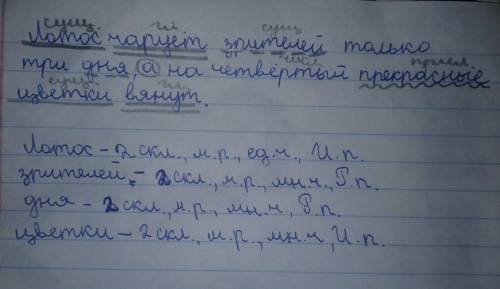 сущ. гл. сущ.
Лотос чарует зрителей только
числ. прил.
три дня, а на четвёртый прекрасные
сущ. гл.
цветки вянут.
Лотос – 2 скл., м.р., ед.ч., И.п.
зрителей, – 2 скл., м.р., мн.ч., Р.п.
дня – 2 скл., м.р., мн.ч., Р.п.
цветки – 2 скл., м.р., мн.ч, И.п.